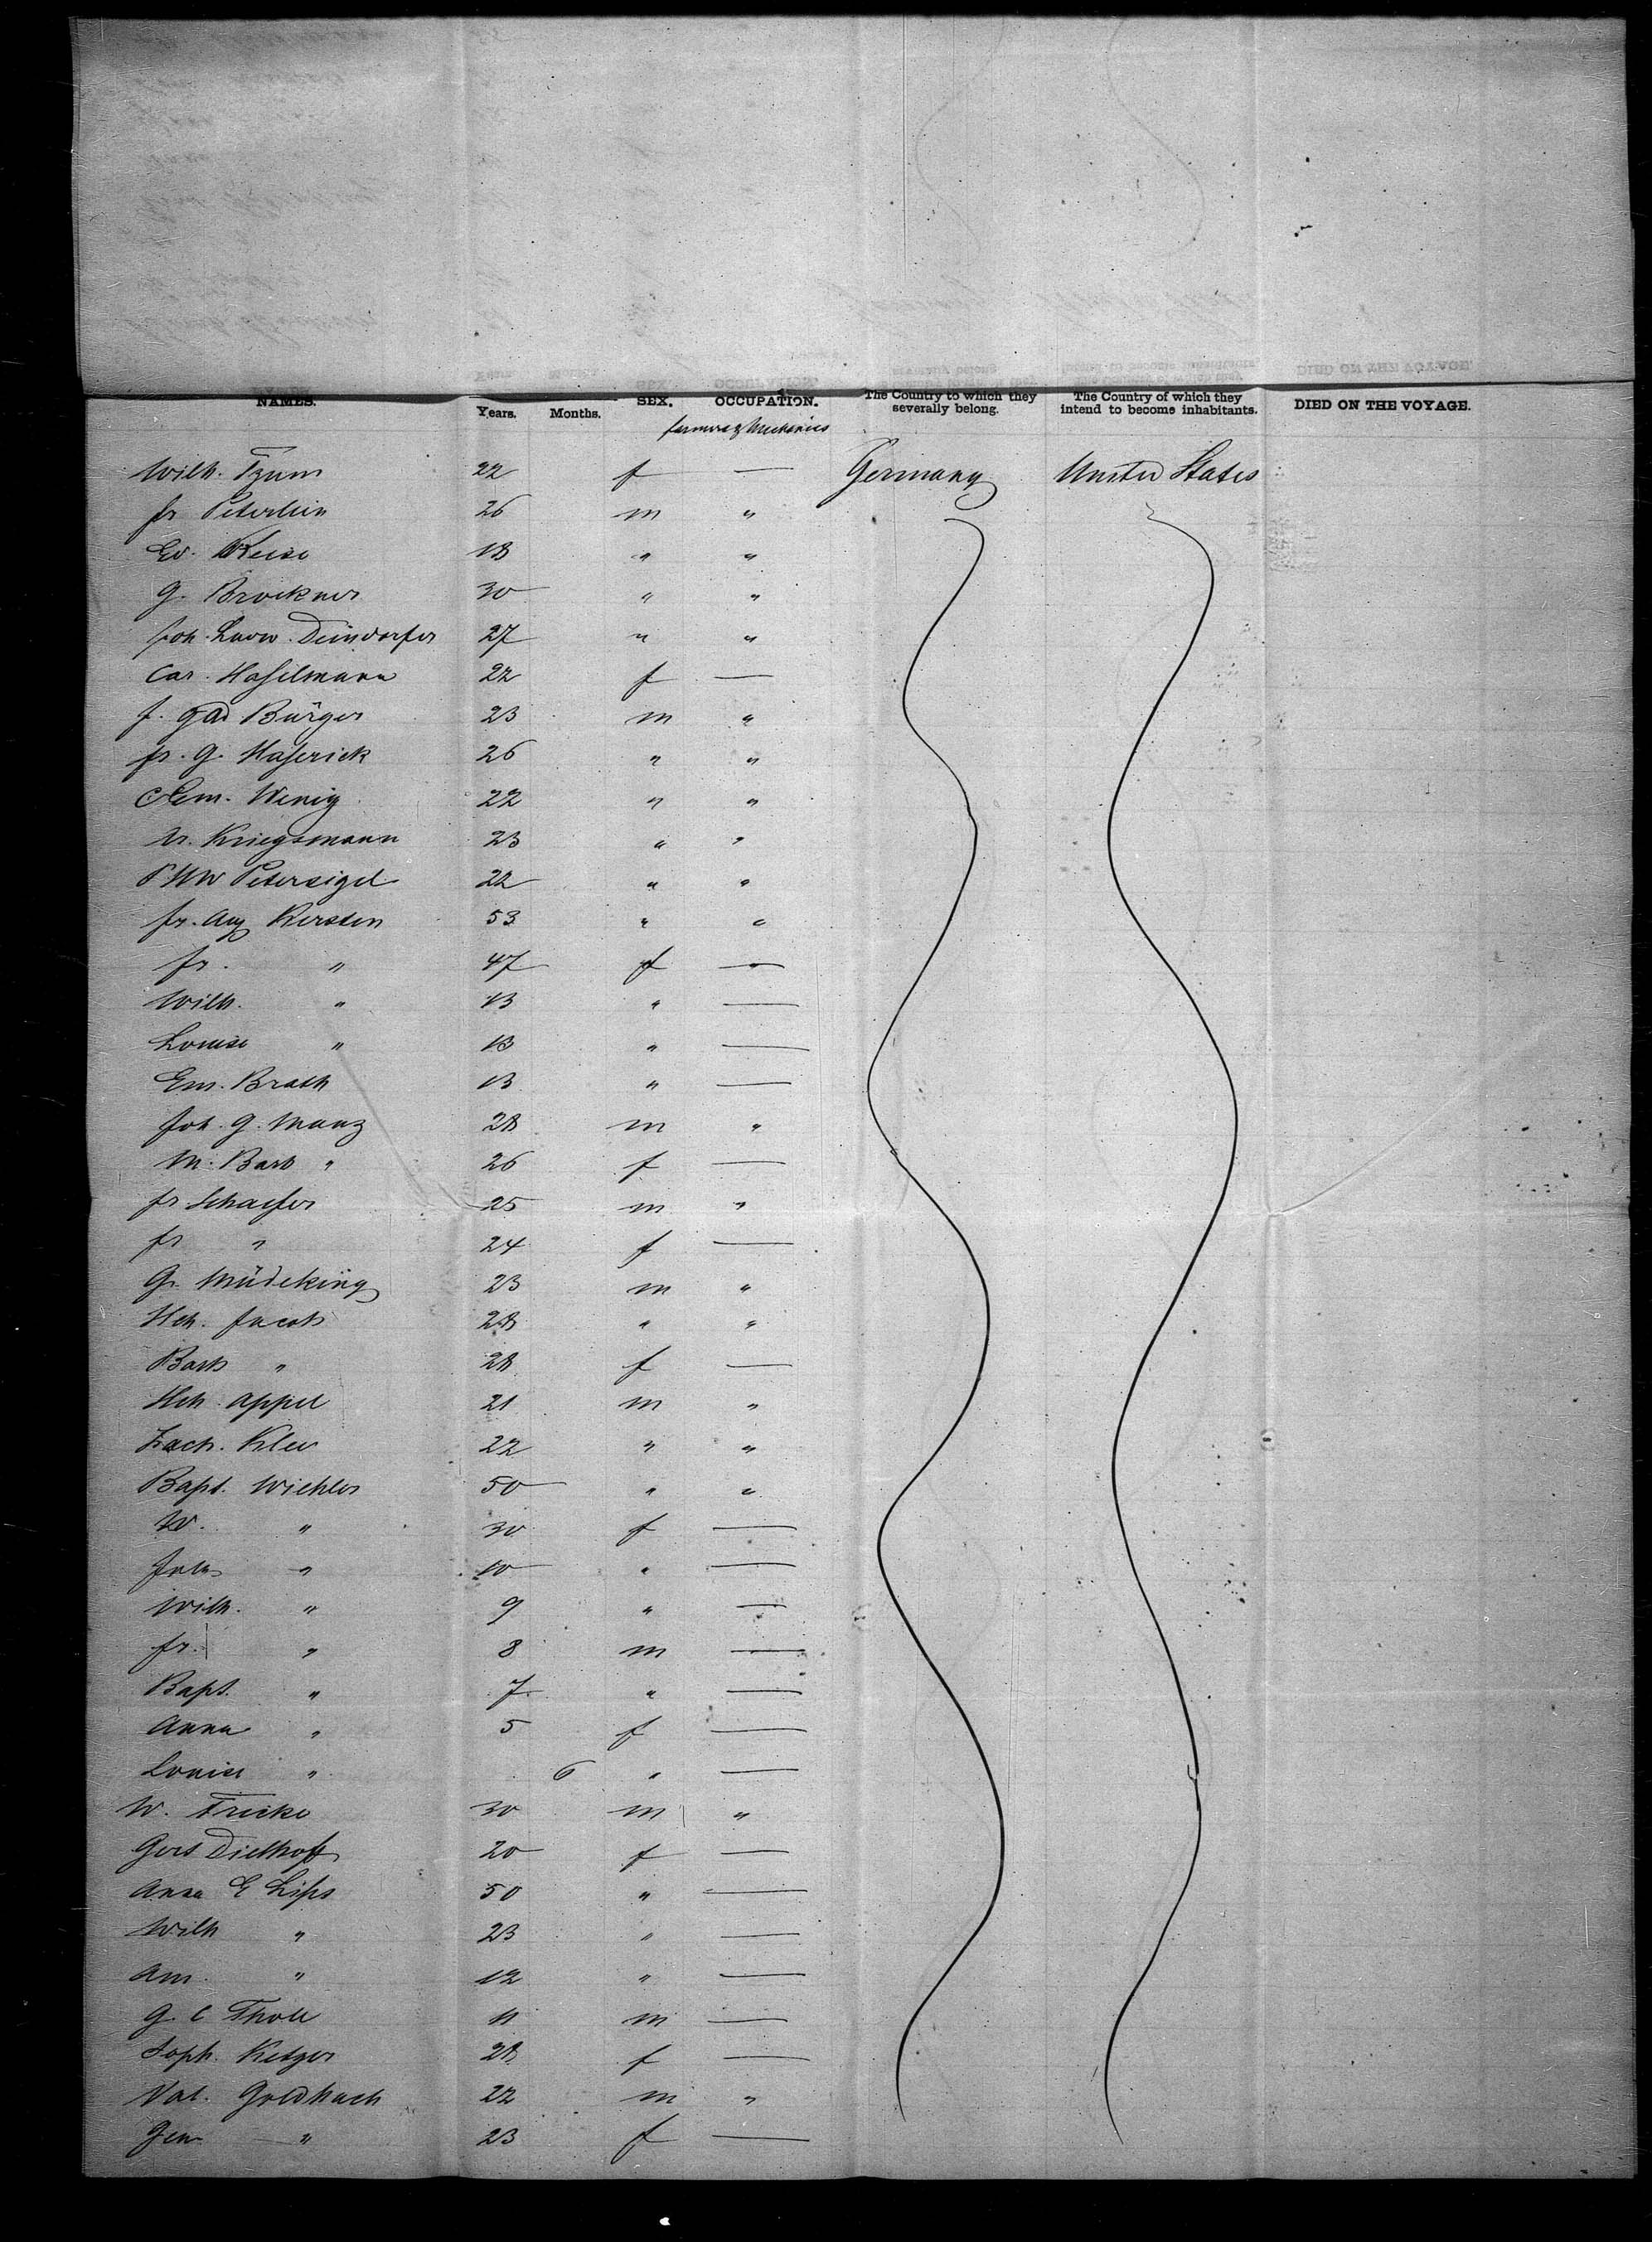 NAMES. Years. Months. SEX. OCCUPATION. The Country to which they severally belong. The Country of which they intend to become inhabitants. DIED ON THE VOYAGE.
farmers & Mechanics
Wilh. 22 f — Germany United States
fr 26 m "
Ed. 18 " "
G. Brockner 30 " "
Joh. Ludw. Deindorfer 27 " "
Car. Haselmann 22 f —
f. Gad Burger 23 m "
fr. G. Haserick 26 " "
Clem. Wenig 22 " "
Kriegsmann 23 " "
Petersigel 22 " "
fr. Aug Kersten 53 " "
fr. " 47 f —
Wilh. " 13 " —
Louise " 13 " —
Em. Brath 13 " —
Joh. G. Manz 28 m "
M. Barb " 26 f —
fr Schaefer 25 m "
fr " 24 f —
G. Müdeking 23 m "
Hch. Jacob 28 " "
Barb " 28 f —
Hch. Appel 21 m "
Zach. Klee 22 " "
Bapt. Wiehler 50 " "
W. " 30 f —
" 10 " —
Wilh. " 9 " —
fr. " 8 m —
Bapt. " 7 " —
Anna " 5 f —
Louise " 6 " —
W. Fricke 30 m "
Gert Dielhoff 20 f —
Anna E Lips 50 " —
Wilh " 23 " —
Am. " 12 " —
G. C Thole 11 m —
Soph. Ketzer 28 f —
Val. Goldbach 22 m "
Gen " 23 f —